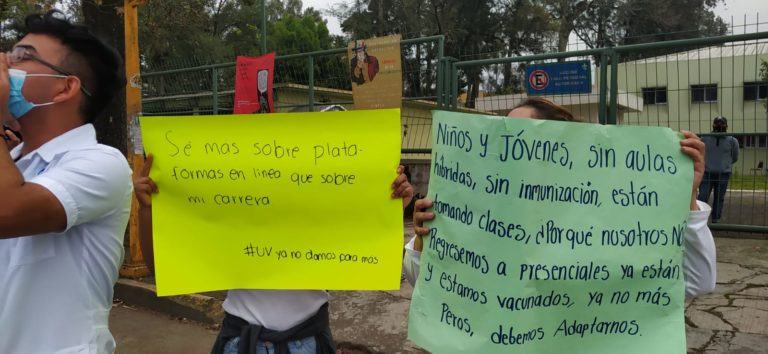 Sé mas sobre plata-
formas en linea que sobre
mi carrera
#UV ya no damos para más
Niños y Jóvenes, sin aulas
híbridas, sin inmunización, están
tomando clases, ¿Porqué nosotros NO?
Regresemos a presenciales ya están
y estamos vacunados, ya no más
Peros, debemos Adaptarnos.